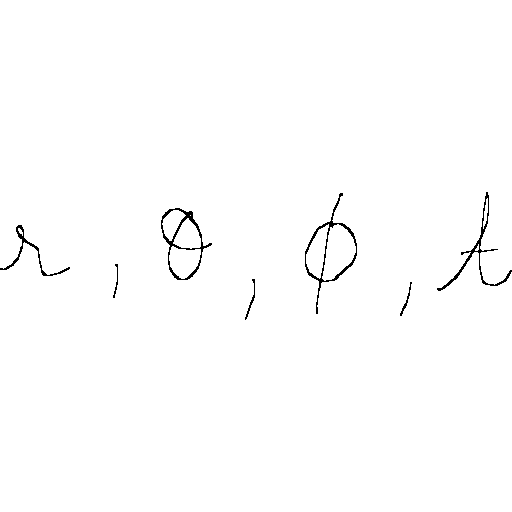 r, θ, ϕ, t